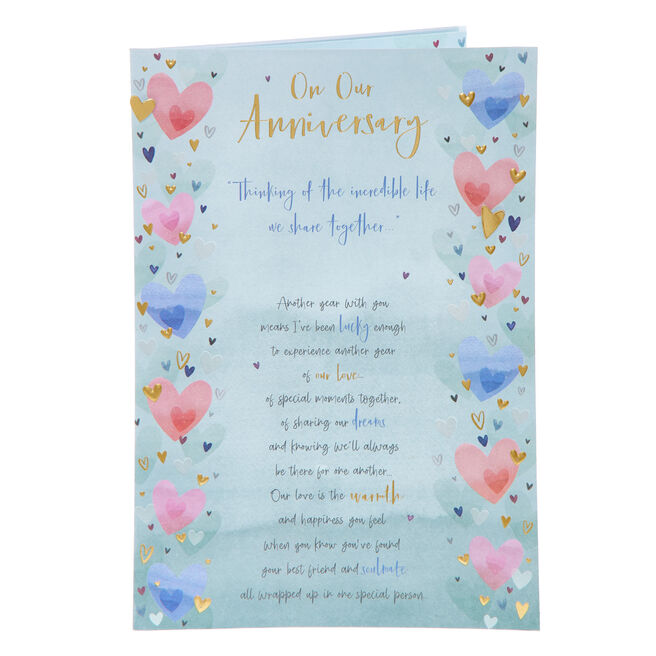 On Our
Anniversary
"Thinking of the incredible life
we share together..."
Another year with you
means I've been lucky enough
to experience another year
of our love...
of special moments together,
of sharing our dreams
and knowing we'll always
be there for one another...
Our love is the warmth
and happiness you feel
when you know you've found
your best friend and soulmate
all wrapped up in one special person.